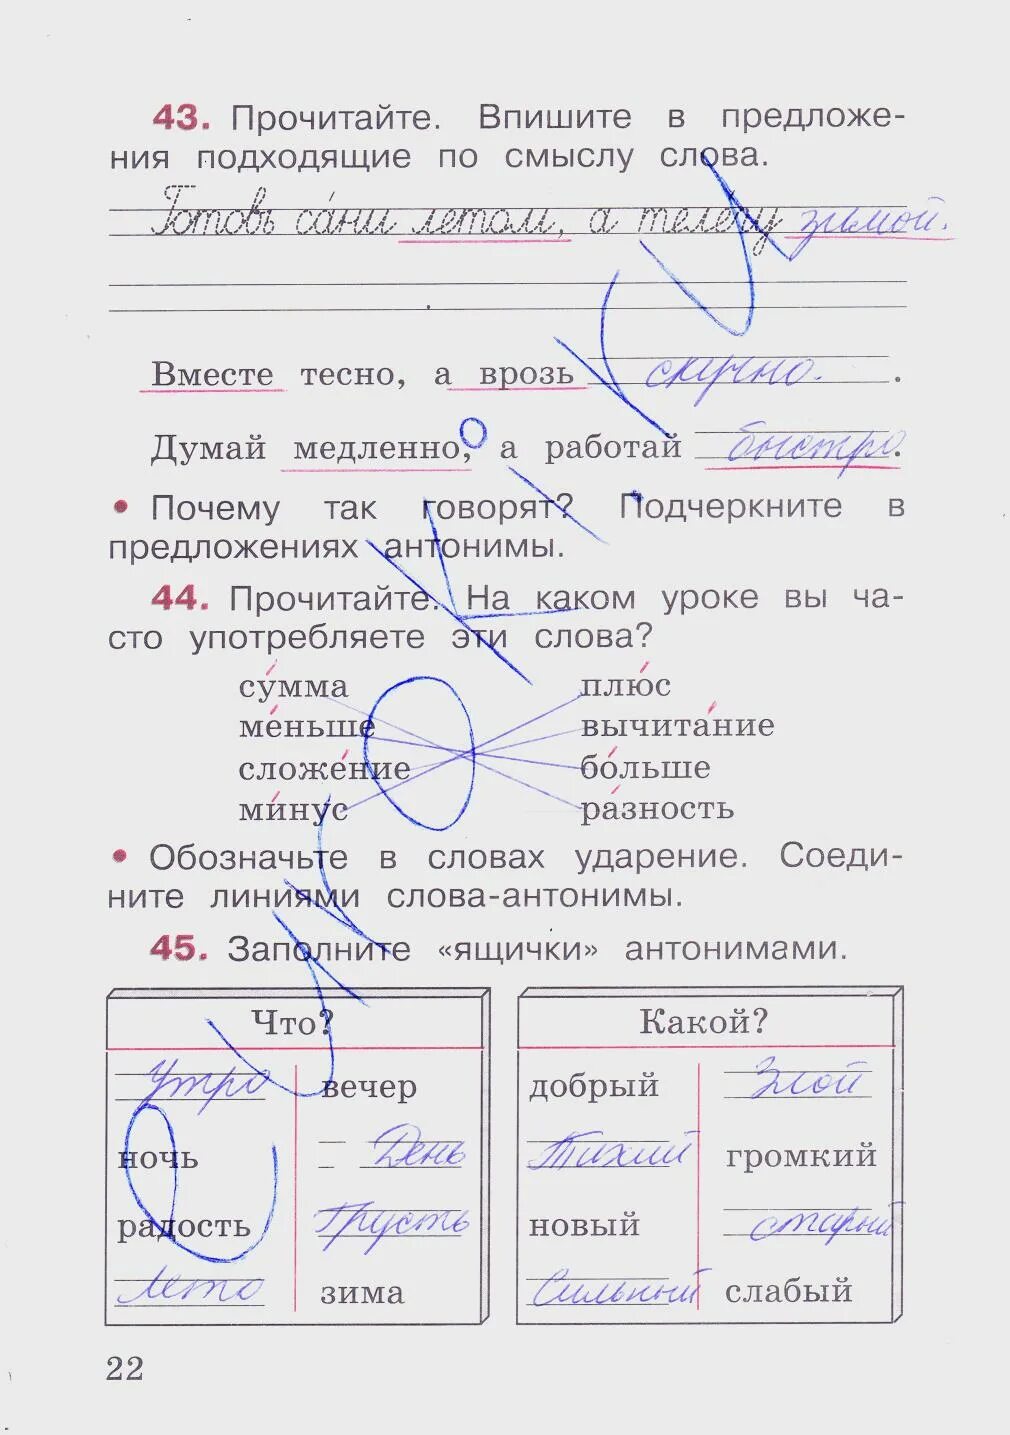 43. Прочитайте. Впишите в предложе-
ния подходящие по смыслу слова.
Готовь са́ни летом, а теле́гу зимой.
Вместе тесно, а врозь скучно.
Думай медленно, а работай быстро.
• Почему так говорят? Подчеркните в
предложениях антонимы.
44. Прочитайте. На каком уроке вы ча-
сто употребляете эти слова?
су́мма плю́с
ме́ньше вычита́ние
сложе́ние бо́льше
ми́нус ра́зность
• Обозначьте в словах ударение. Соеди-
ните линиями слова-антонимы.
45. Заполните «ящички» антонимами.
Что? Какой?
Утро вечер добрый Злой
ночь День Тихий громкий
радость Грусть новый старый
Лето зима Сильный слабый
22